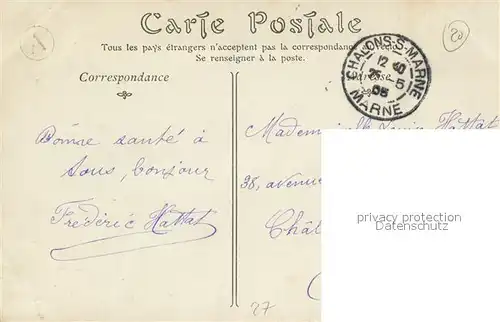 Carte Postale
Tous les pays étrangers n'acceptent pas la correspondance au recto
Se renseigner à la poste.
Correspondance
Adresse
CHALONS-S-MARNE
12 40
25 - 5
08
MARNE
Bonne santé à
tous, bonjour
Frédéric Hattat
Mademoiselle Hattat
38, avenue
Châl
privacy protection
Datenschutz
27